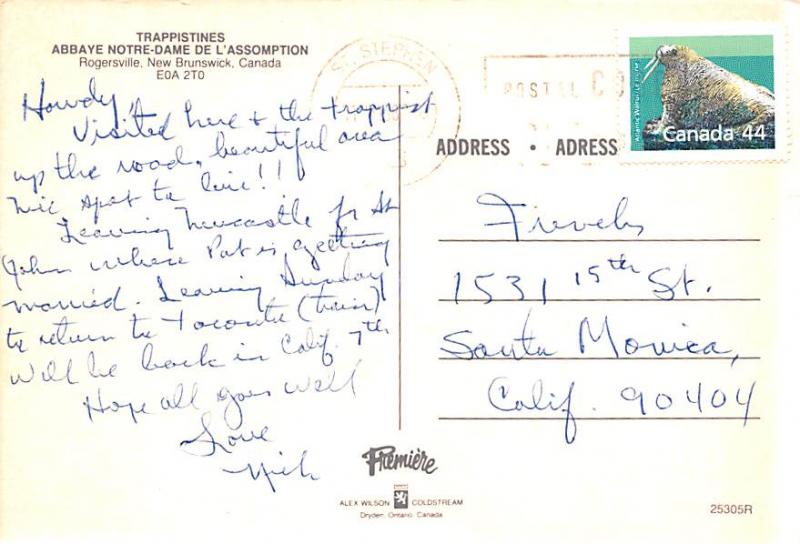 TRAPPISTINES
ABBAYE NOTRE-DAME DE L'ASSOMPTION
Rogersville, New Brunswick, Canada
E0A 2T0
Howdy,
Visited here + the trappist
up the road, beautiful area
nice spot to live!!
Leaving Newcastle for St
John where Pat is getting
married. Leaving Sunday
to return to Toronto (train)
Will be back in Calif. 7th
Hope all goes well
Love
Nick
ST. STEPHEN
POSTAL CO
Canada 44
ADDRESS • ADRESS
1531 15th St.
Santa Monica,
Calif. 90404
Première
ALEX WILSON COLDSTREAM
Dryden, Ontario, Canada
25305R